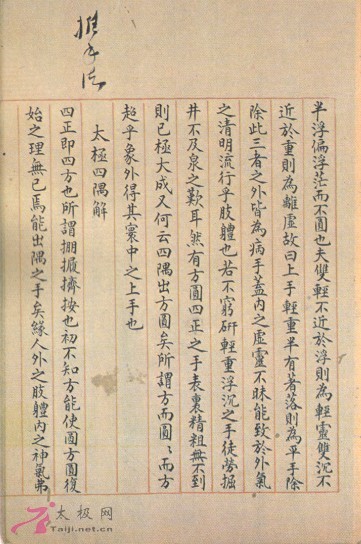 半浮偏浮茫而不圓也夫雙輕不近於浮則為輕靈雙沉不
近於重則為離虛故曰上手輕重半有著落則為平手除
除此三者之外皆為病手蓋內之虛靈不昧能致於外氣
之清明流行乎肢體也若不窮研輕重浮沉之手徒勞掘
井不及泉之歎耳然有方圓四正之手表裏精粗無不到
則已極大成又何云四隅出方圓矣所謂方而圓〻而方
超乎象外得其寰中之上手也
太極四隅解
四正即四方也所謂掤攦擠按也初不知方能使圓方圓復
始之理無已焉能出隅之手矣緣人外之肢體內之神氣弗
太极网
Taiji.net.cn